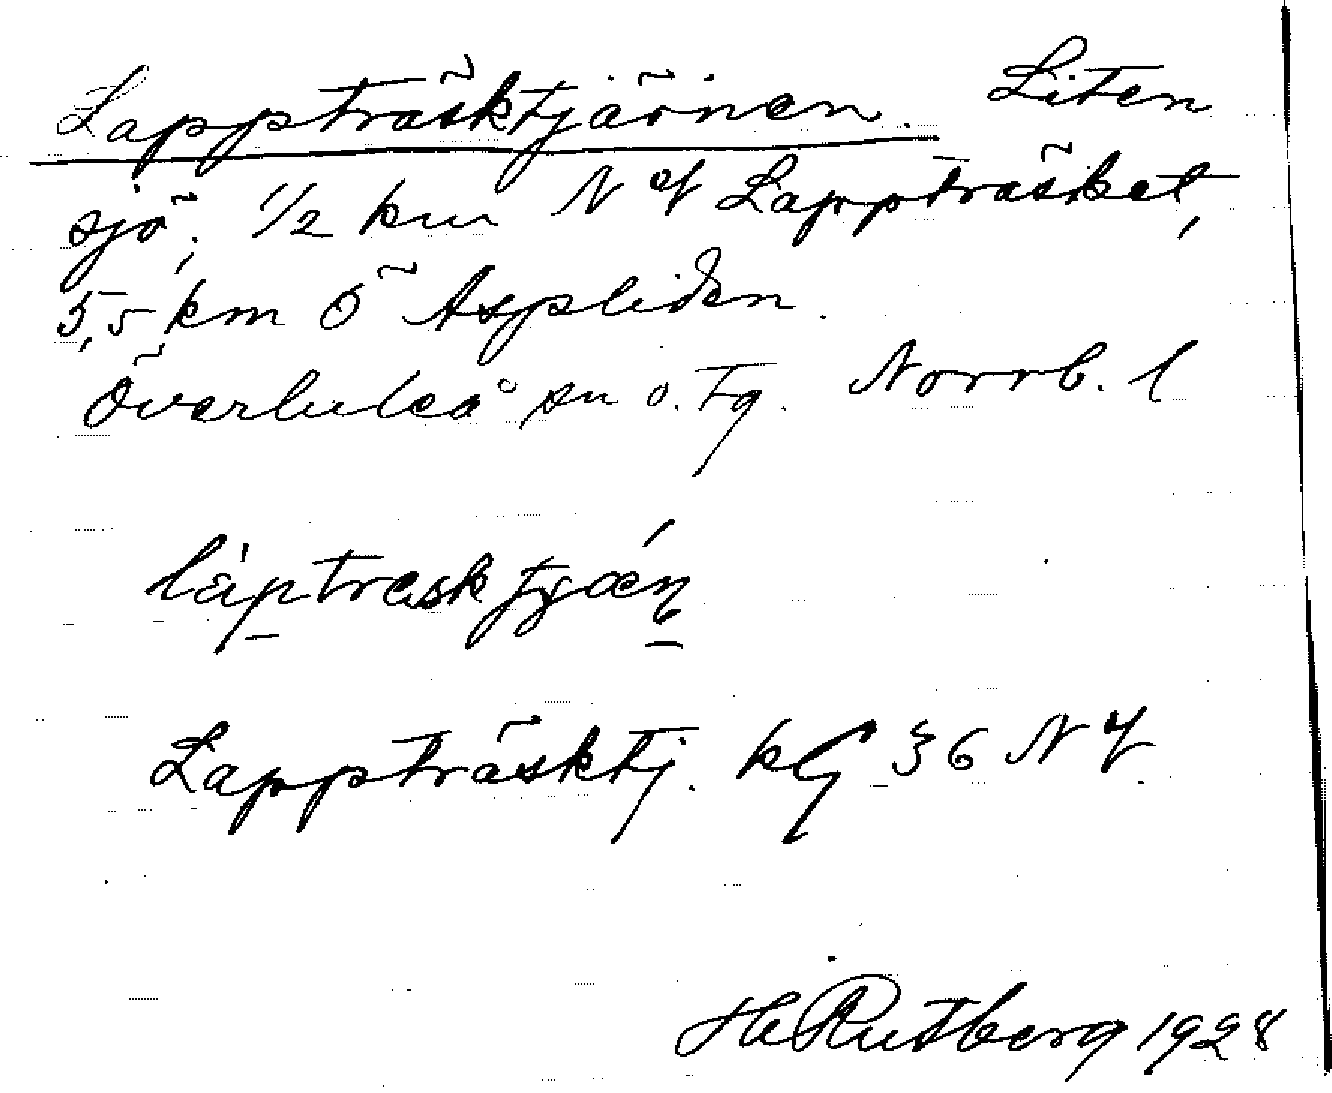 Lappträsktjärnen. Liten
sjö, 1/2 km N of Lappträsket,
5,5 km Ö Aspliden.
Överluleå sn o. tg. Norrb. l
Lappträsktj. kg 36 NV
H Rutberg 1928